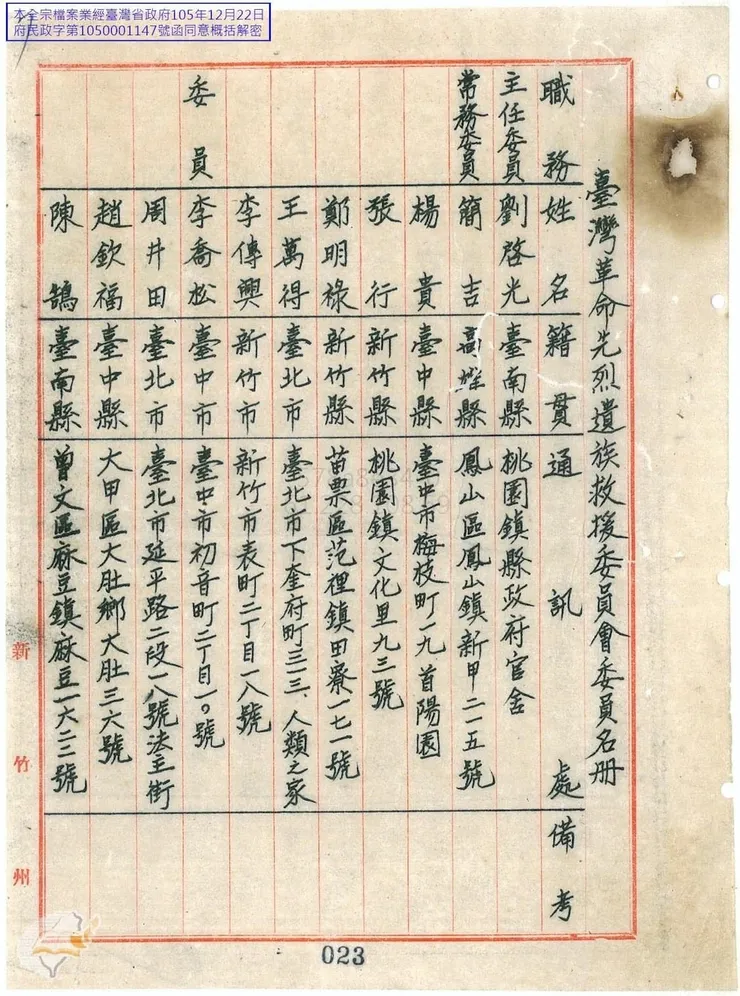 本全宗檔案業經臺灣省政府105年12月22日
府民政字第1050001147號函同意概括解密
臺灣革命先烈遺族救援委員會委員名册
職務 姓名 籍貫 通訊處 備考
主任委員 劉啓光 臺南縣 桃園鎮縣政府官舍
常務委員 簡吉 高雄縣 鳳山區鳳山鎮新甲二一五號
楊貴 臺中縣 臺中市梅枝町一九首陽園
張行 新竹縣 桃園鎮文化里九三號
鄭明祿 新竹縣 苗票區范裡鎮田寮一七一號
王萬得 臺北市 臺北市下奎府町三一三、人類之家
李傳興 新竹市 新竹市表町二丁目一八號
委員 李喬松 臺中市 臺中市初音町二丁目一〇號
周井田 臺北市 臺北市延平路二段一八號法主街
趙欽福 臺中縣 大甲區大肚鄉大肚三六號
陳鵠 臺南縣 曾文區麻豆鎮麻豆一六二二號
新竹州
023